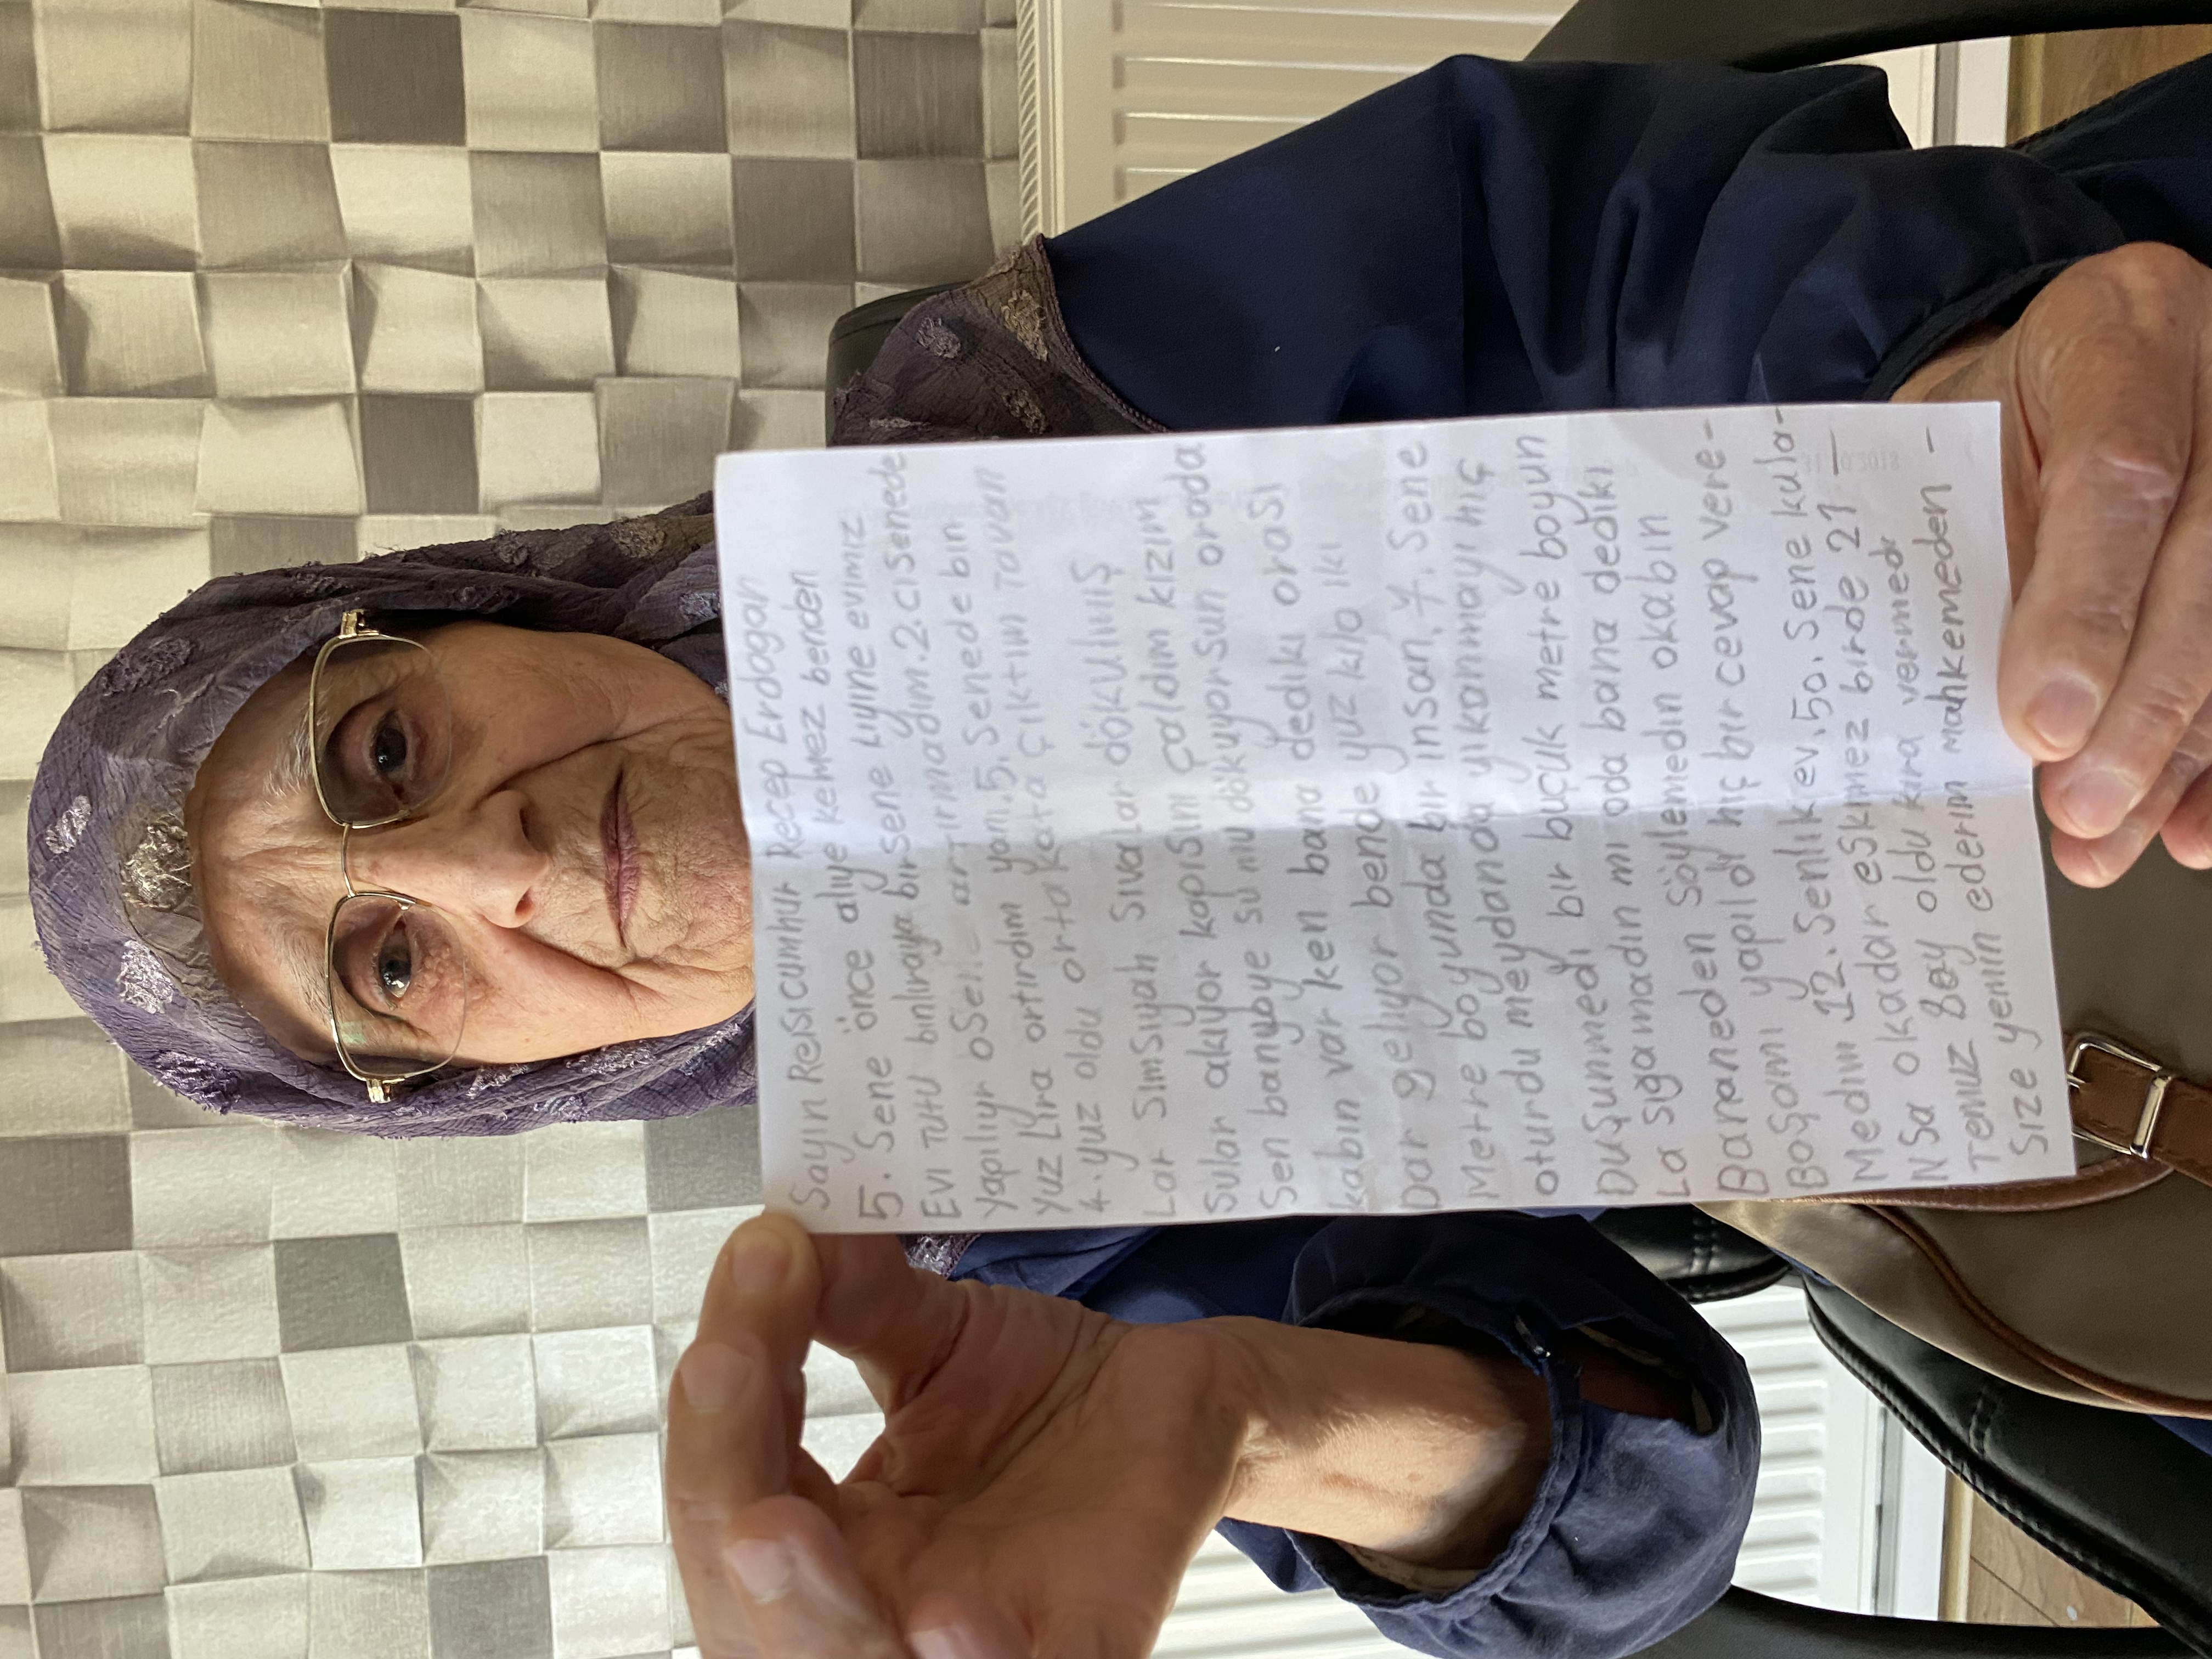 Sayın Reisicumhur Recep Erdogan
5. Sene önce alıye kemez benden
Evi TUTU binliraya bir sene Liyine evimiz
yapılıyr oSene artırmadım.2.ciSenede
yuz Lira ortırdım yani.5.Senede bin
4.yuz oldu ortakata çıktım Tavan
Lar Simsiyah Sıvalar dökülmüş
Sular akıyor kapısını çaldım kızım
Sen banyoye su mu döküyorsun orada
kabin var ken bana dediki orası
Dar geliyor bende yuz kilo iki
Metre boyunda bir insan. 7. Sene
oturdu meydanda yıkanmayı hiç
Duşunmedi bir buçuk metre boyun
La sığamadın mı oda bana dediki
Bananeden söylemedin okabin
Boşamı yapıldı hiç bir cevap vere-
Medim 12. Senlik ev.50. Sene kula-
NSa okadar eskimez birde 21 -
Temuz 8ay oldu kira vermedi
Size yemin ederim mahkemeden -